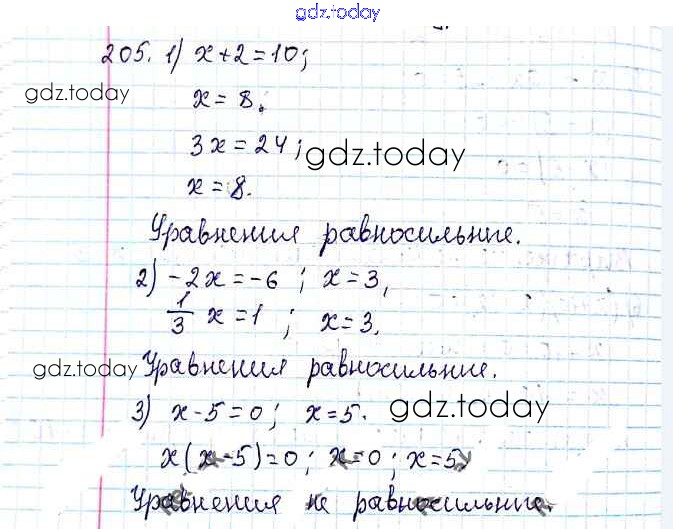 gdz.today
205. 1) x+2=10;
gdz.today
x=8.
3x=24; gdz.today
x=8.
Уравнения равносильные.
2) -2x=-6 ; x=3,
1/3 x=1 ; x=3.
gdz.today Уравнения равносильные.
3) x-5=0; x=5. gdz.today
x(x-5)=0; x=0; x=5,
Уравнения не равносильные.